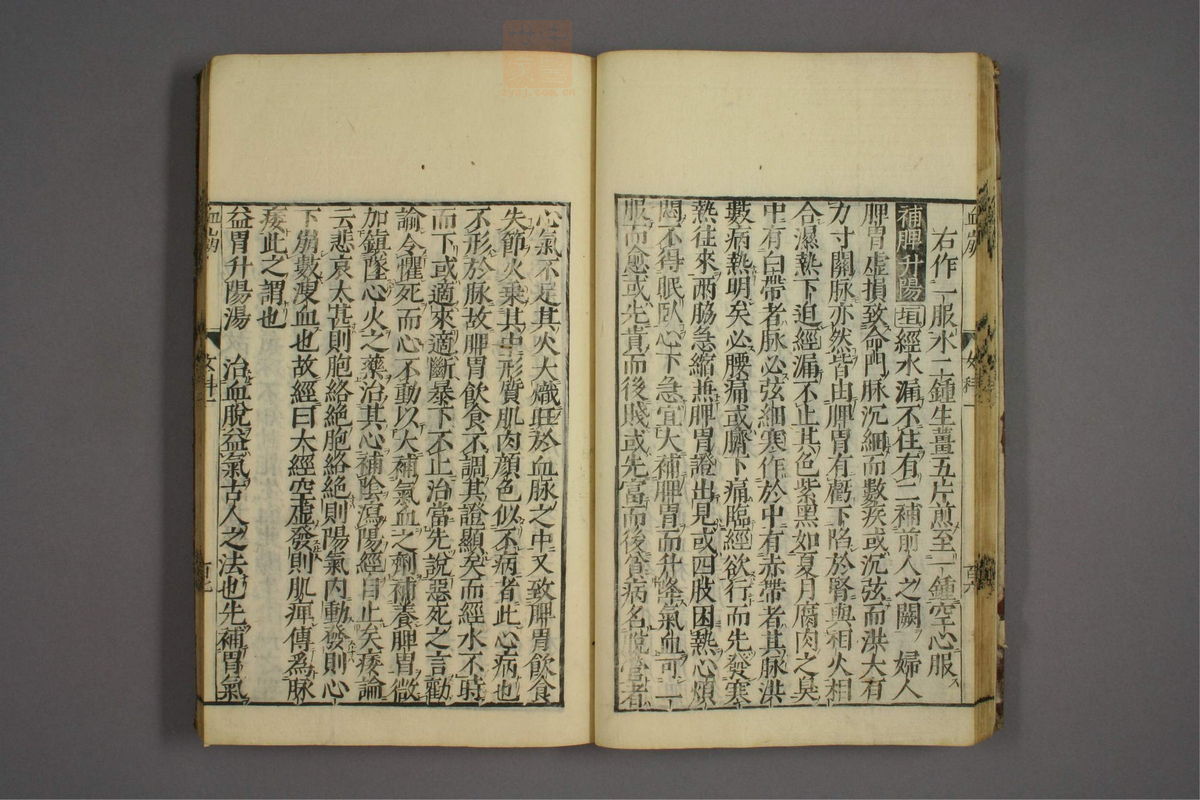 右作一服水二鍾生薑五片煎至一鍾空心服
補脾升陽 垣 經水漏不住有二補前人之闕 婦人
脾胃虛損致命門脉沉細而數疾或沉弦而洪大有
力寸關脉亦然皆由脾胃有虧下陷於腎與相火相
合濕熱下迫經漏不止其色紫黑如夏月腐肉之臭
中有白帶者脉必弦細寒作於中有赤帶者其脉洪
數病熱明矣必腰痛或臍下痛臨經欲行而先發寒
熱往來兩脇急縮兼脾胃證出見或四肢困熱心煩
悶不得眠臥心下急宜大補脾胃而升降氣血可一
服而愈或先貴而後賤或先富而後貧病名脫營者
心氣不足其火大熾旺於血脉之中又致脾胃飲食
失節火乗其中形質肌肉顔色似不病者此心病也
不形於脉故脾胃飲食不調其證顯矣而經水不時
而下或適來適斷暴下不止治當先說惡死之言勸
論令懼死而心不動以大補氣血之劑補養脾胃微
加鎮墜心火之藥治其心補陰瀉陽經自止矣痿論
云悲哀太甚則胞絡絶胞絡絶則陽氣內動發則心
下崩數溲血也故經曰大經空虛發則肌痺傳為脉
痿此之謂也
益胃升陽湯 治血脫益氣古人之法也先補胃氣
血崩
女科
血崩
女科一